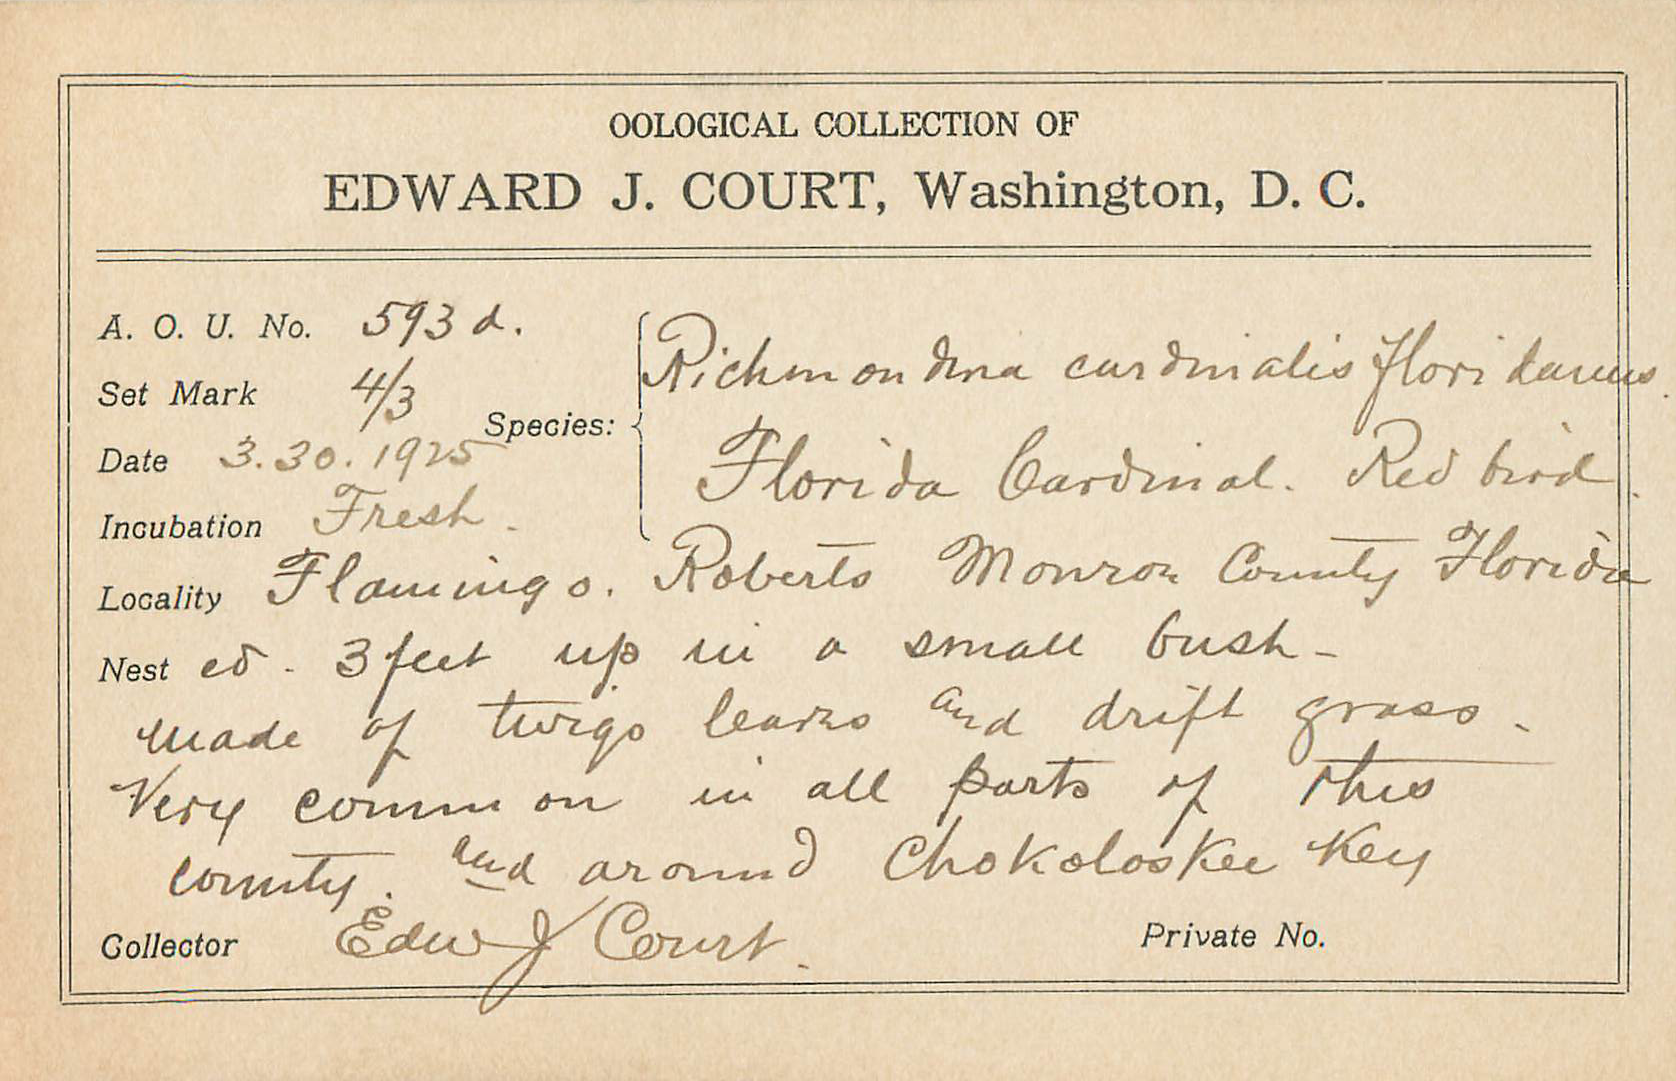 OOLOGICAL COLLECTION OF
EDWARD J. COURT, Washington, D. C.
A. O. U. No. 593 d.
Set Mark 4/3
Date 3.30.1925
Incubation Fresh.
Species: Richmondena cardinalis floridanus.
Florida Cardinal. Red bird.
Locality Flamingo. Roberts Monroe County Florida
Nest ed. 3 feet up in a small bush -
made of twigs leaves and drift grass.
Very common in all parts of this
county. and around Chokoloskee Key
Collector Edw J Court.
Private No.